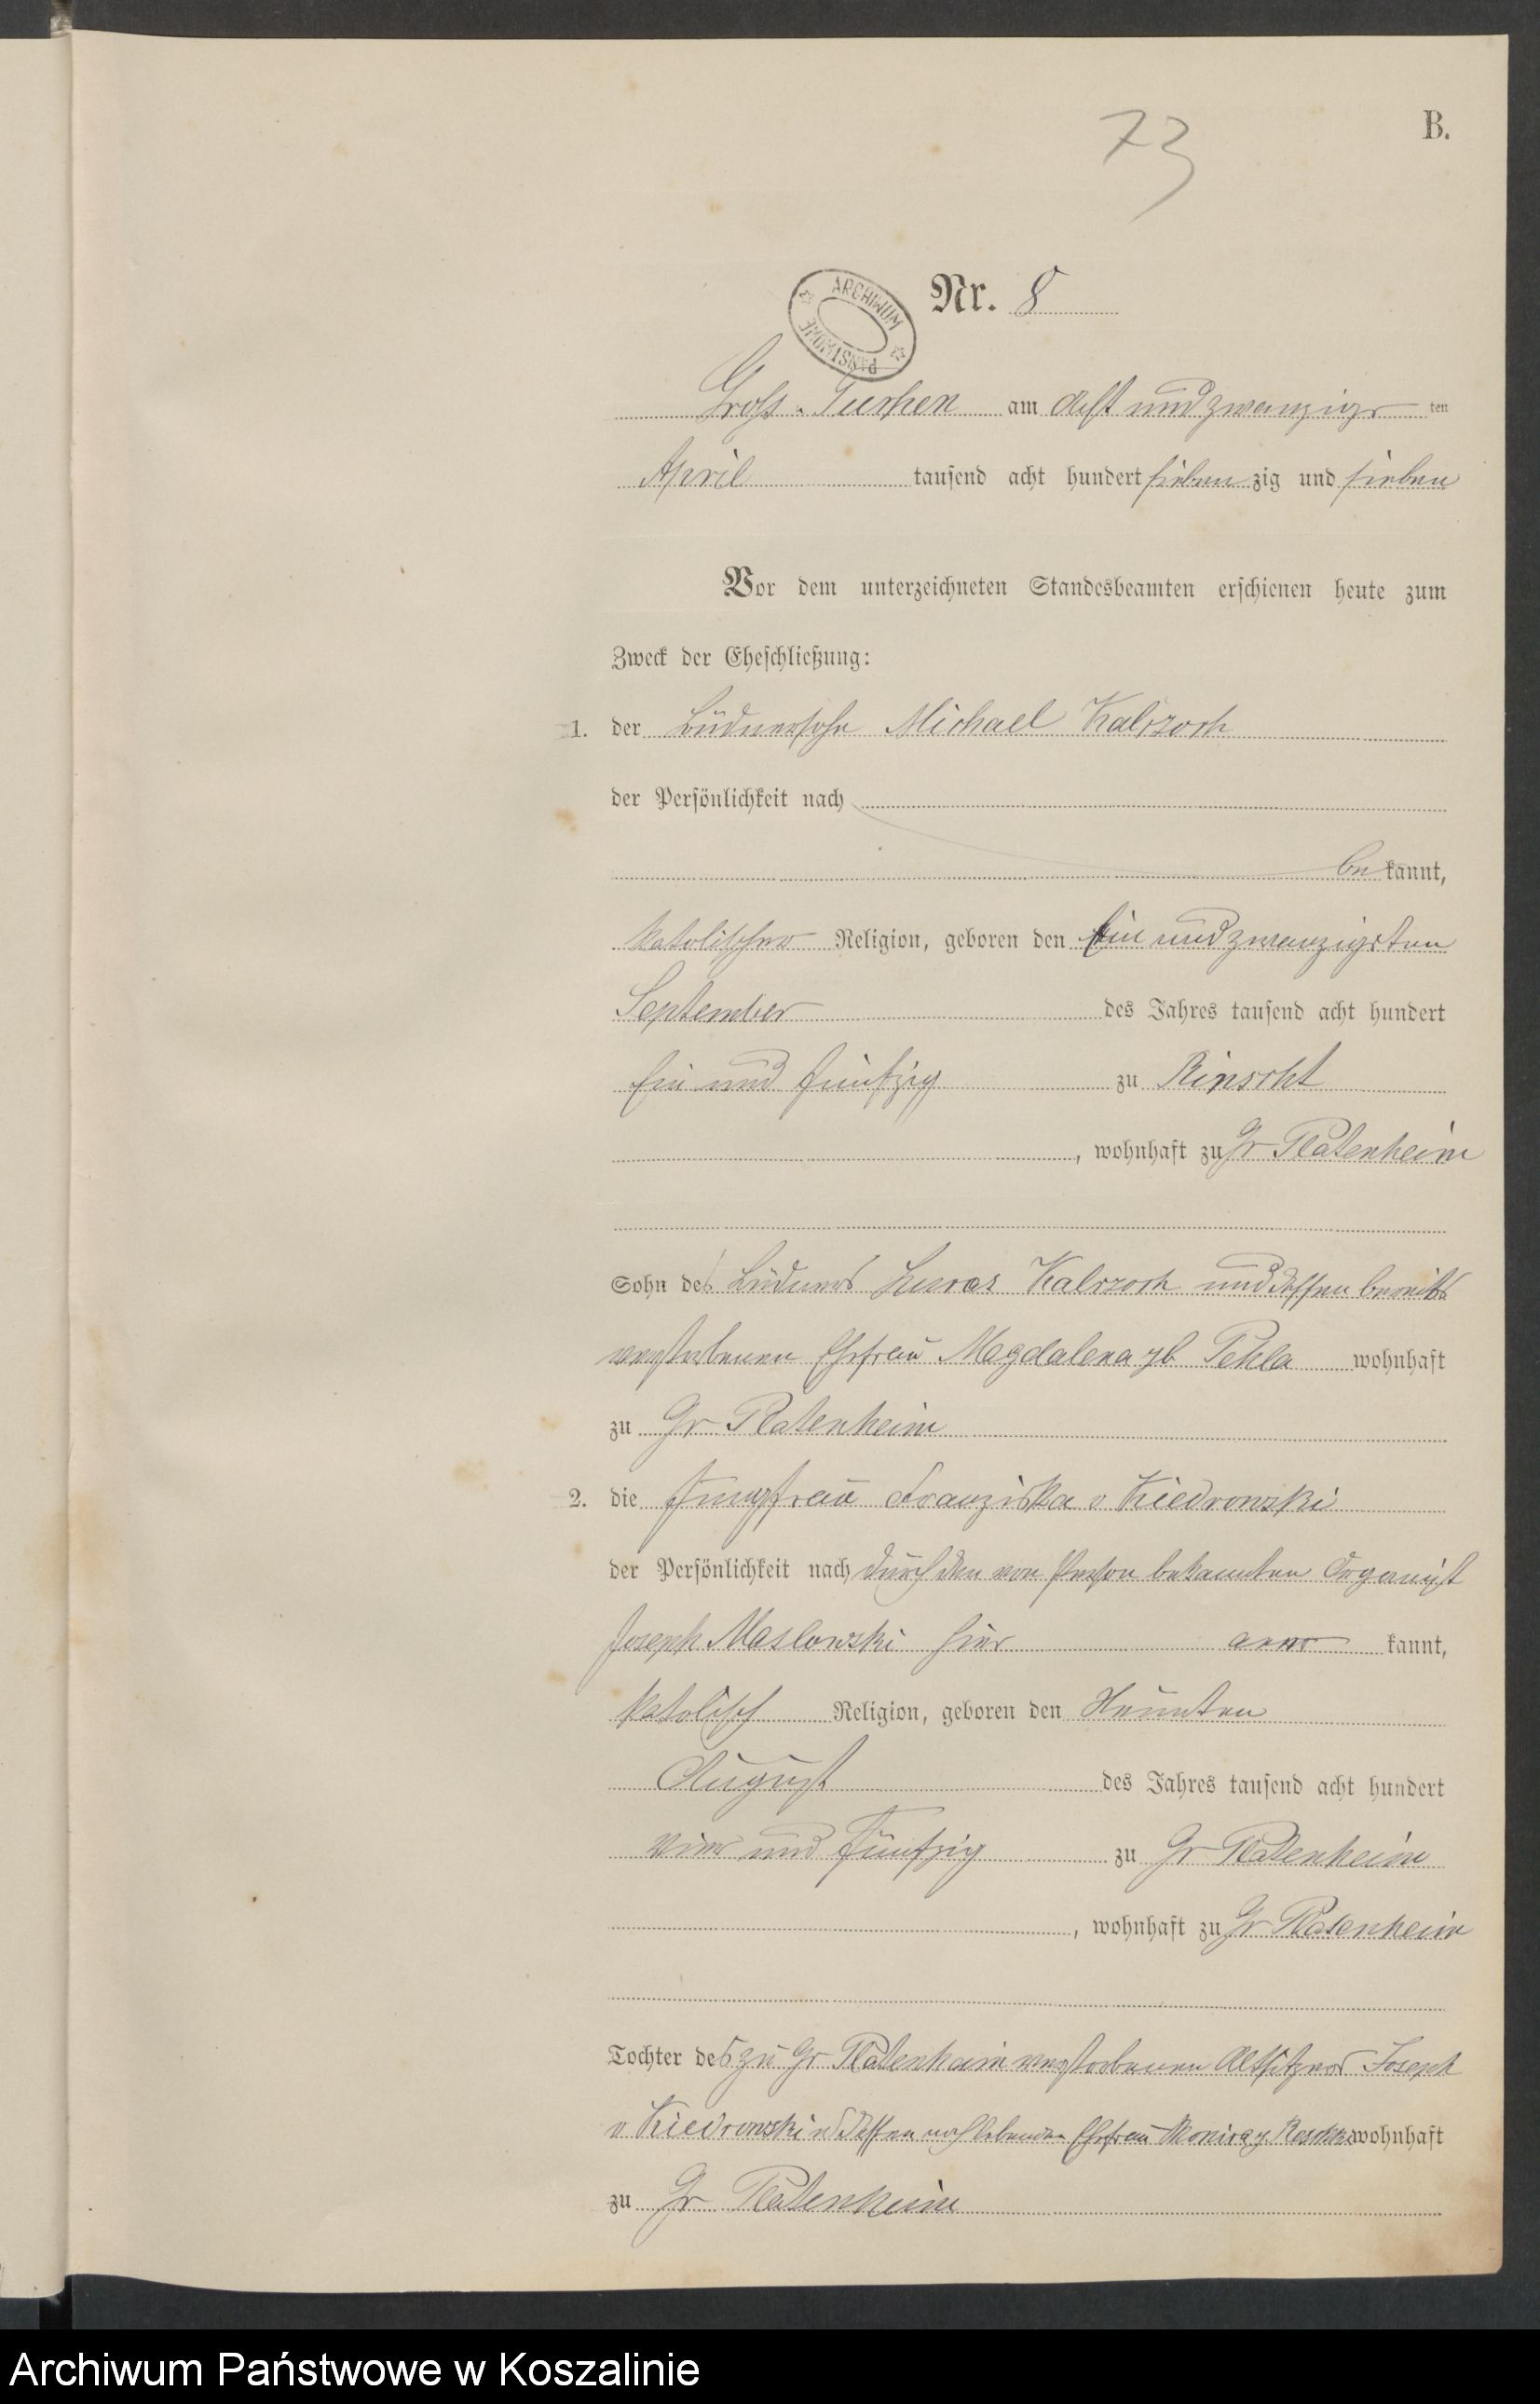 73
B.
ARCHIWUM PAŃSTWOWE
Nr. 8
Gross-Tuchen am Acht und zwanzigs ten
April tausend acht hundert sieben zig und sieben
Vor dem unterzeichneten Standesbeamten erschienen heute zum
Zweck der Eheschließung:
1. der Büdnersohn Michael
der Persönlichkeit nach
be kannt,
katolischer Religion, geboren den Ein und zwanzigsten
September des Jahres tausend acht hundert
Ein und fünfzig zu
, wohnhaft zu Gr Platenheim
Sohn des Büdners Lucas und dessen bereits
verstorbenen Ehefrau Magdalena gb wohnhaft
zu Gr Platenheim
2. die Jungfrau Franziska v Kiedrowski
der Persönlichkeit nach durch den von Person bekannten Organist
Joseph Maslowski hier aner kannt,
katolisch Religion, geboren den Neunten
August des Jahres tausend acht hundert
vier und fünfzig zu Gr Platenheim
, wohnhaft zu Gr Platenheim
Tochter des zu Gr Platenheim verstorbenen Altsitzers Joseph
v Kiedrowski u dessen noch lebenden Ehefrau Monica g wohnhaft
zu Gr Platenheim
Archiwum Państwowe w Koszalinie